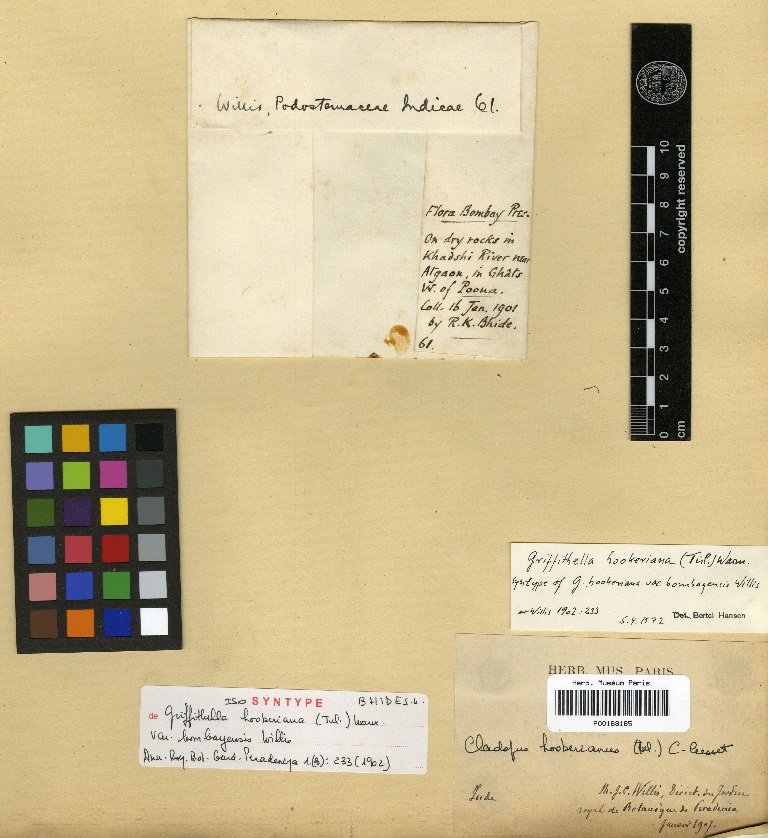 Willis, Podostemaceae Indicae 61.
Flora Bombay Pres.
On dry rocks in
Khadshi River near
Atgaon, in Ghats
W. of Poona.
Coll. 16 Jan. 1901
by R.K. Bhide.
61.
10
9
8
7
6
5
4
3
2
1
0
cm
copyright reserved
Griffithella hookeriana (Tul.) Warm.
syntype of G. hookeriana var. bombayensis Willis
Willis 1902: 233
Det. Bertel Hansen
ISO SYNTYPE BHIDE s.n.
de Griffithella hookeriana (Tul.) Warm.
var. bombayensis Willis
Ann. Roy. Bot. Gard. Peradeniya 1(3): 233 (1902)
HERB. MUS. PARIS
Herb. Muséum Paris
P00168185
Cladopus hookerianus (Tul.) C. Cusset
Inde
M. J. C. Willis, Direct. du Jardin
royal de Botanique de Peradenia
Janvier 1907.